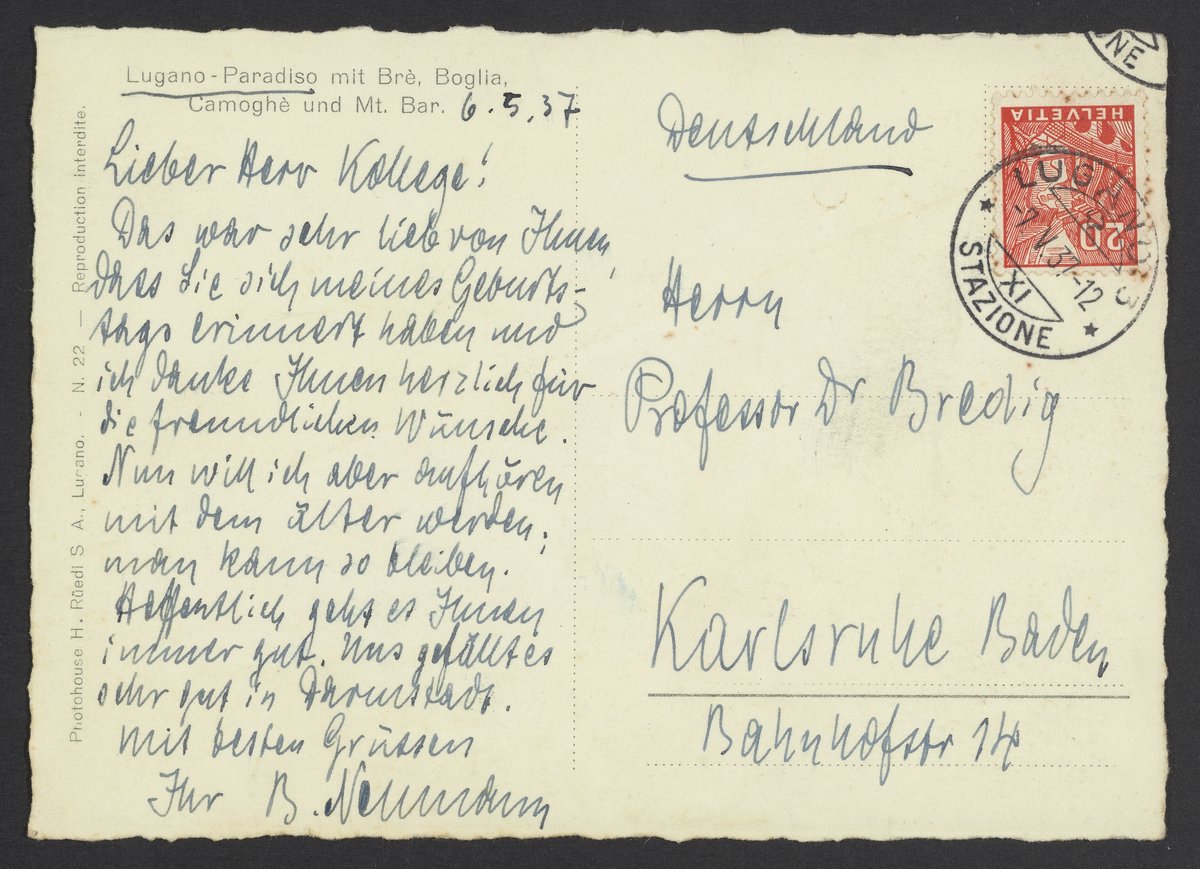 Lugano-Paradiso mit Brè, Boglia,
Camoghè und Mt. Bar. 6.5.37
Lieber Herr Kollege!
Das war sehr lieb von Ihnen,
dass Sie sich meines Geburts-
tags erinnert haben und
ich danke Ihnen herzlich für
die freundlichen Wünsche.
Nun will ich aber aufhören
mit dem älter werden;
man kann so bleiben.
Hoffentlich geht es Ihnen
immer gut. Uns gefällt es
sehr gut in Darmstadt.
Mit besten Grüssen
Ihr B. Neumann
Photohouse H. Rüedi S A., Lugano. - N. 22 — Reproduction interdite.
Deutschland
Herrn
Professor Dr Bredig
Karlsruhe Baden
Bahnhofstr 14
HELVETIA
20
LUGANO 3
-7.V.37-12
XI
STAZIONE
ONE